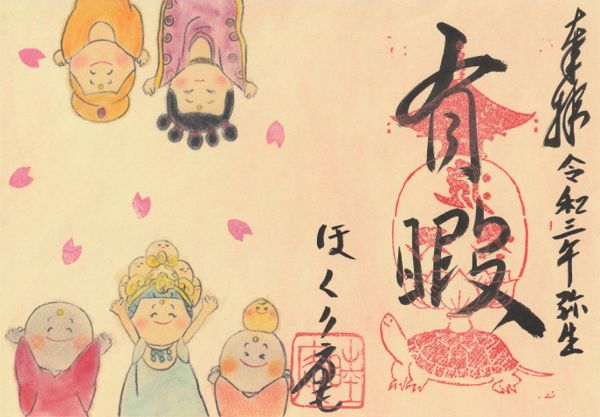 奉拝 令和三年 弥生
有暇
ほくり庵